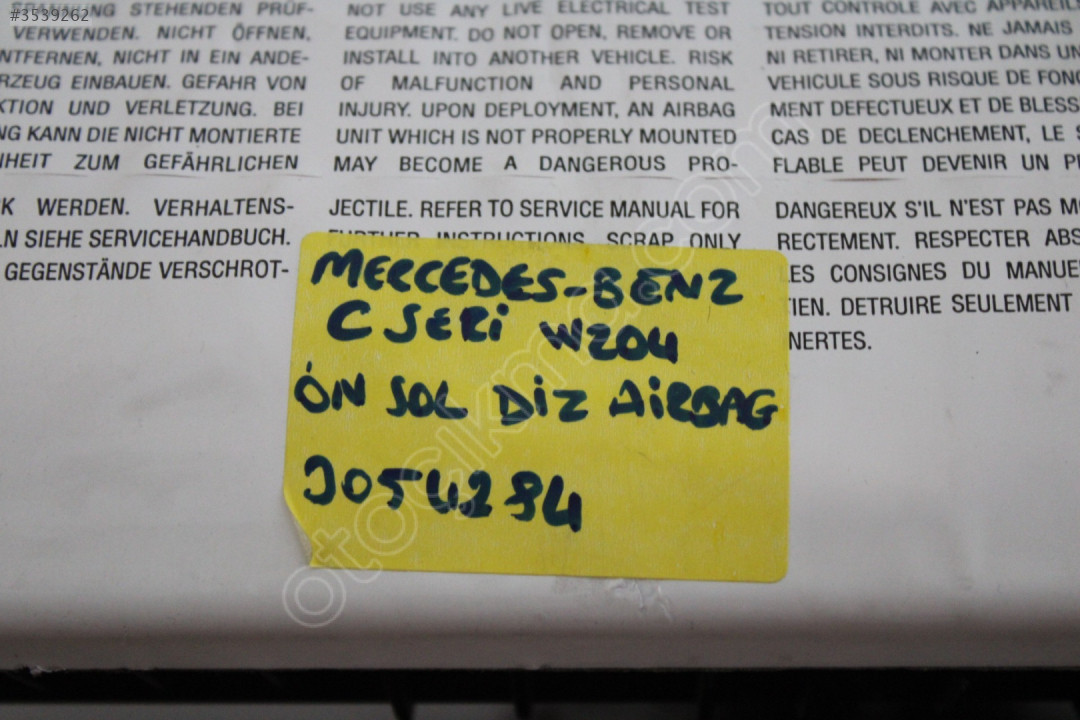 #3539262
STEHENDEN PRÜF-
VERWENDEN. NICHT ÖFFNEN,
ENTFERNEN, NICHT IN EIN ANDE-
EINBAUEN. GEFAHR VON
UND VERLETZUNG. BEI
KANN DIE NICHT MONTIERTE
ZUM GEFÄHRLICHEN
WERDEN. VERHALTENS-
SIEHE SERVICEHANDBUCH.
GEGENSTÄNDE VERSCHROT-
NOT USE ANY LIVE ELECTRICAL TEST
EQUIPMENT. DO NOT OPEN, REMOVE OR
INSTALL INTO ANOTHER VEHICLE. RISK
OF MALFUNCTION AND PERSONAL
INJURY. UPON DEPLOYMENT, AN AIRBAG
UNIT WHICH IS NOT PROPERLY MOUNTED
MAY BECOME A DANGEROUS PRO-
JECTILE. REFER TO SERVICE MANUAL FOR
FURTHER INSTRUCTIONS. SCRAP ONLY
TOUT CONTROLE AVEC APPAREILS
TENSION INTERDITS. NE JAMAIS
NI RETIRER, NI MONTER DANS UN
VEHICULE SOUS RISQUE DE FONC
MENT DEFECTUEUX ET DE BLESS
CAS DE DECLENCHEMENT, LE S
FLABLE PEUT DEVENIR UN
DANGEREUX S'IL N'EST PAS MO
RECTEMENT. RESPECTER ABS
LES CONSIGNES DU MANUE
TIEN. DETRUIRE SEULEMENT
INERTES.
MERCEDES-BENZ
C SERİ W204
ÖN SOL DİZ AİRBAG
otocikma.com